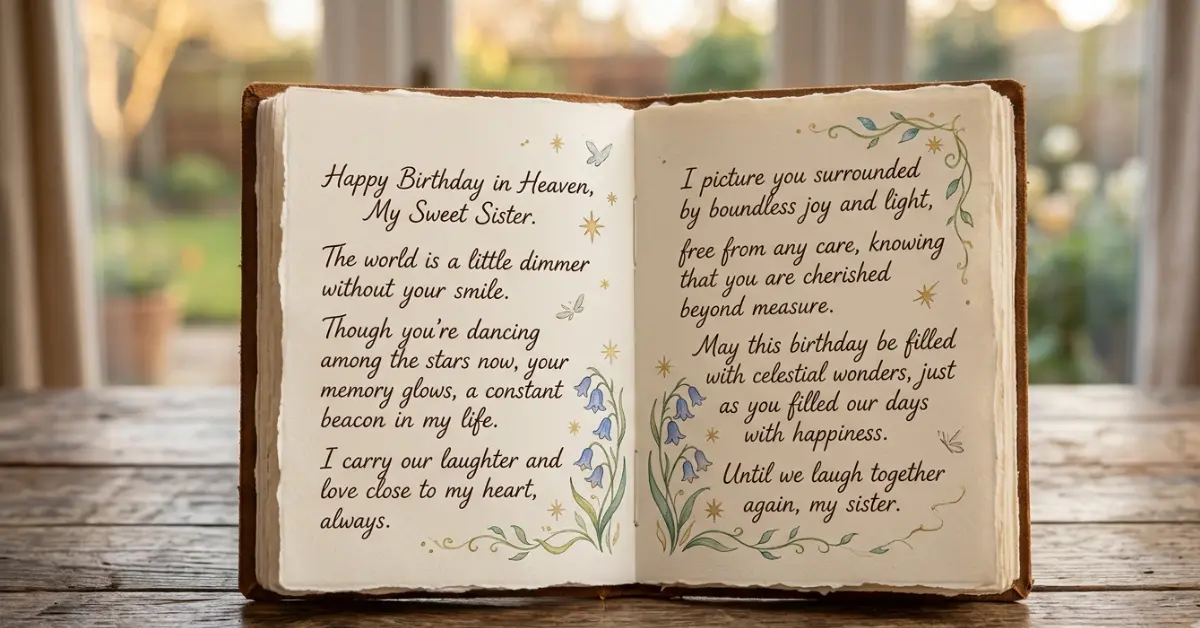 Happy Birthday in Heaven,
My Sweet Sister.
The world is a little dimmer
without your smile.
Though you're dancing
among the stars now, your
memory glows, a constant
beacon in my life.
I carry our laughter and
love close to my heart,
always.
I picture you surrounded
by boundless joy and light,
free from any care, knowing
that you are cherished
beyond measure.
May this birthday be filled
with celestial wonders, just
as you filled our days
with happiness.
Until we laugh together
again, my sister.